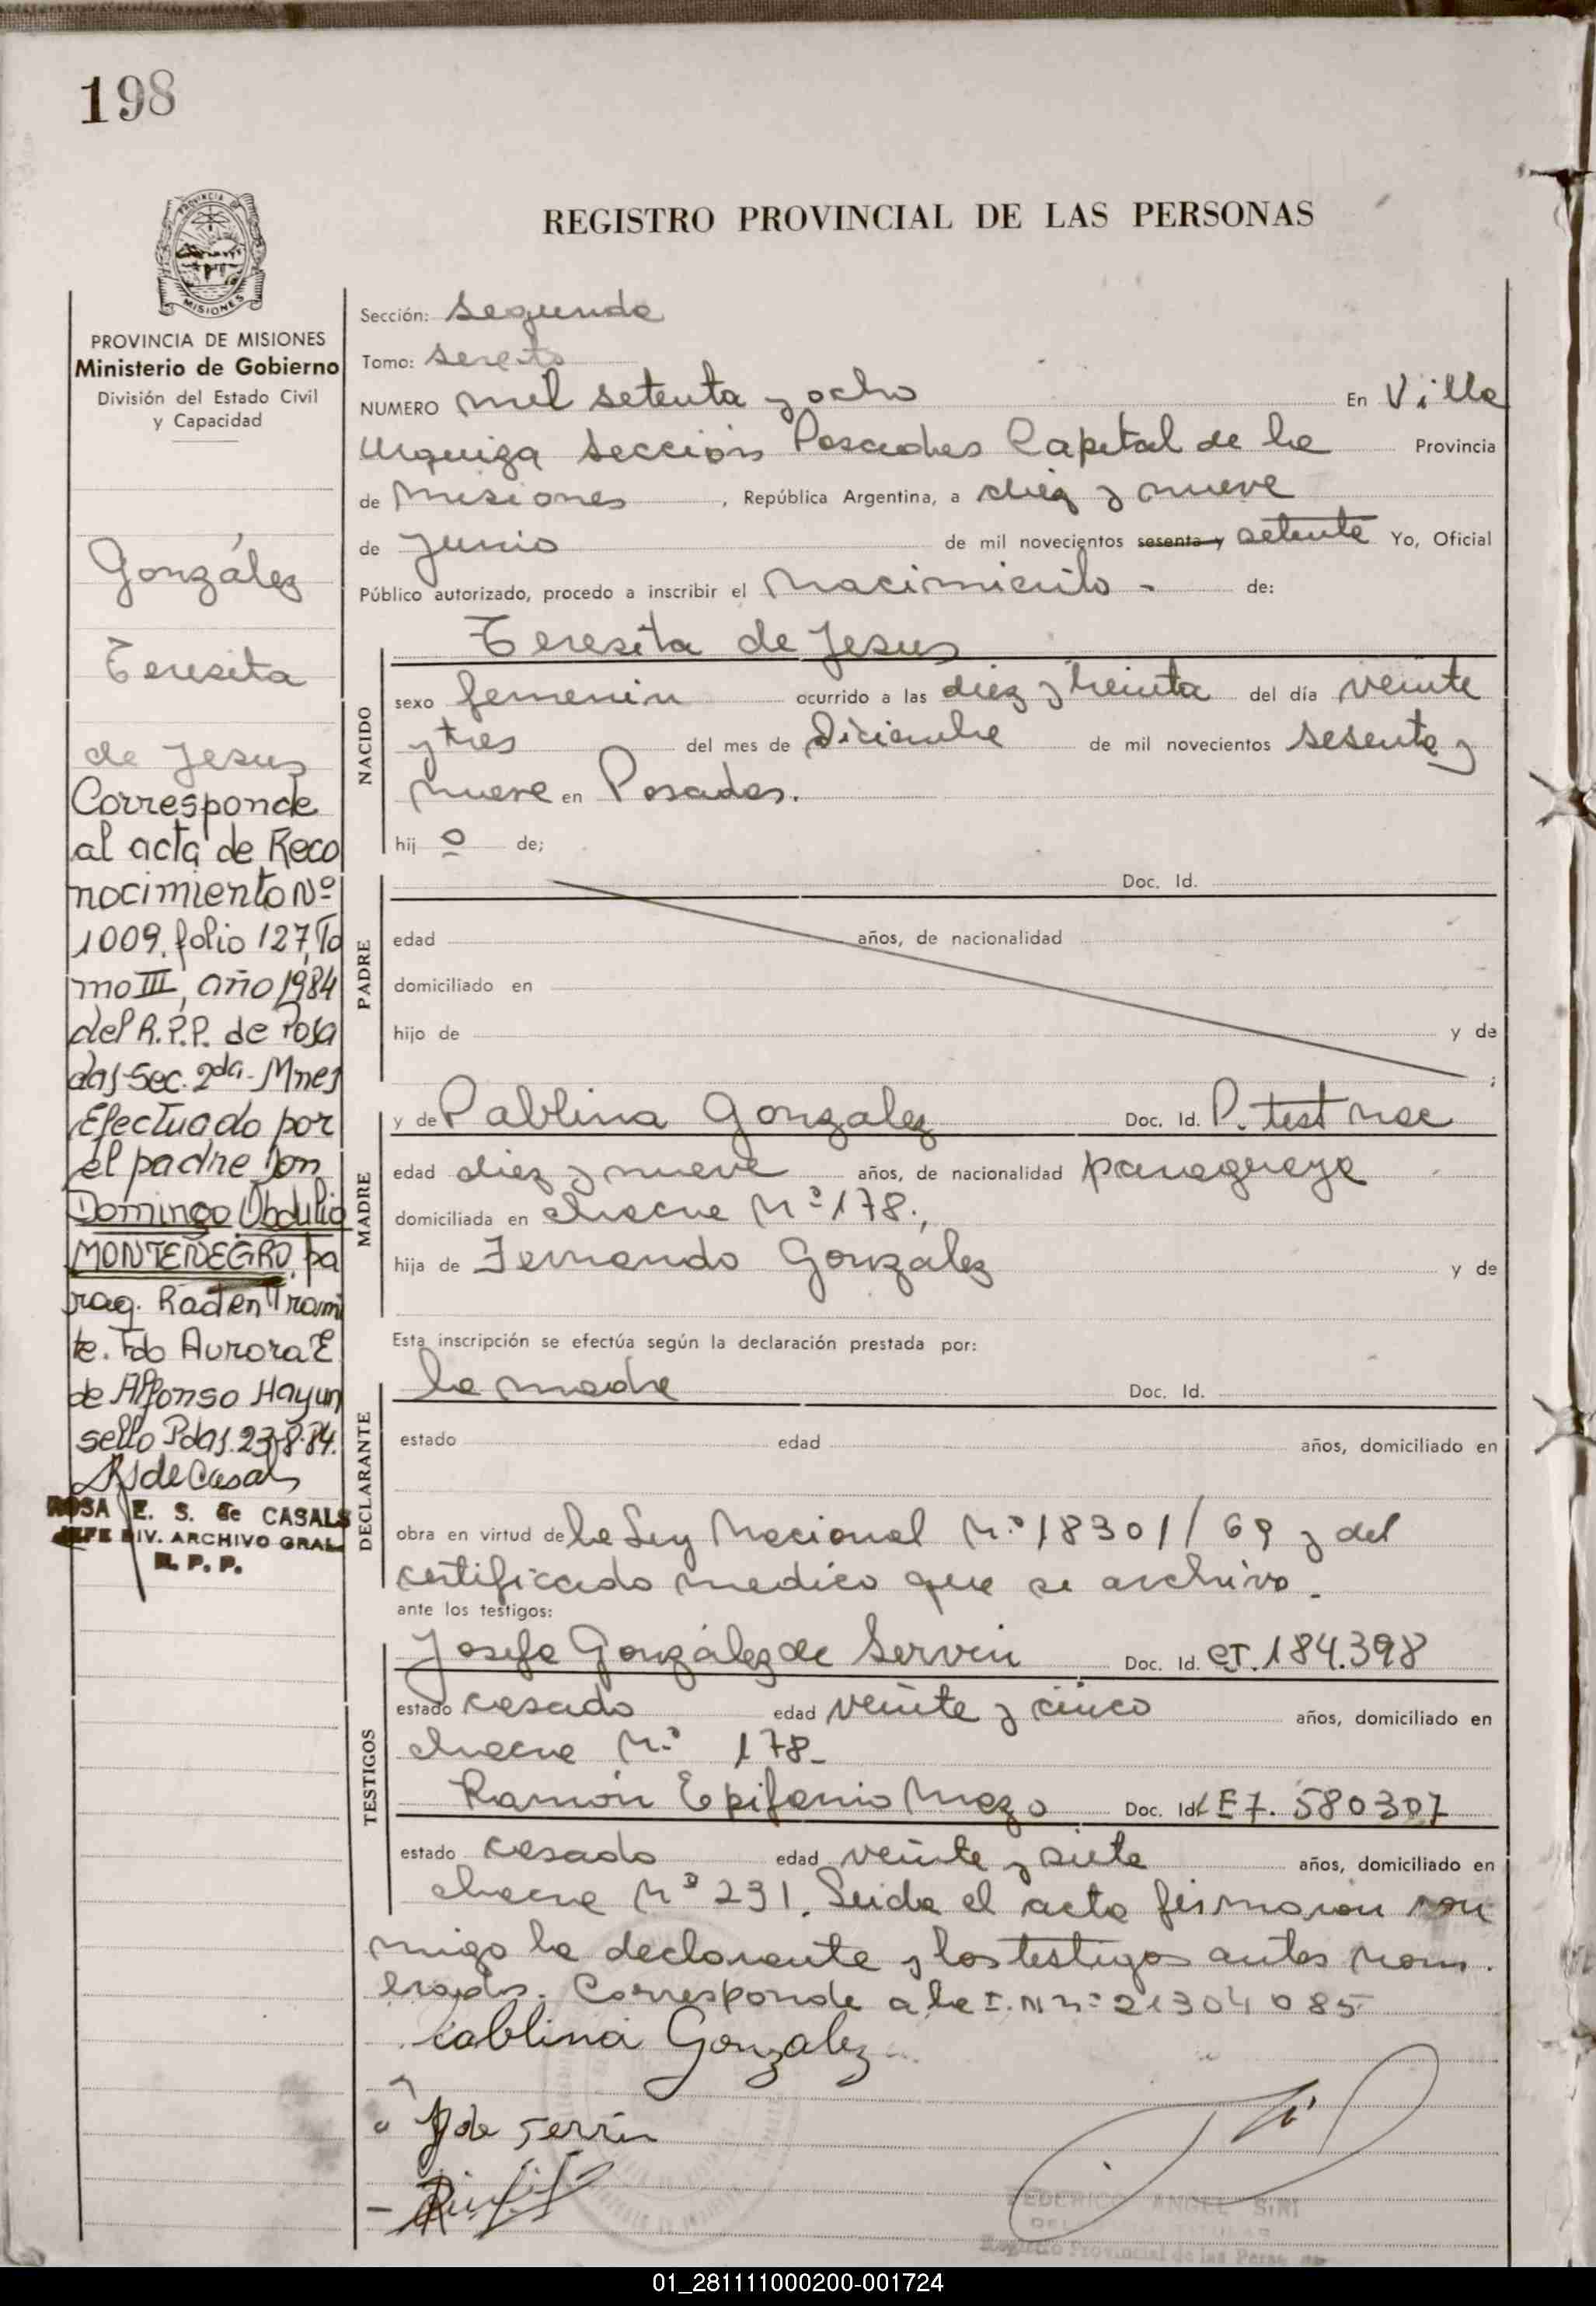 198
PROVINCIA DE MISIONES
Ministerio de Gobierno
División del Estado Civil
y Capacidad
González
Teresita
de Jesus
Corresponde
al acta de Reco
nocimiento Nº
1009, folio 127, To
mo III, año 1984
del R.P.P. de Posa
das Sec. 2da. Mnes
Efectuado por
el padre Don
Domingo Obdulio
MONTENEGRO, pa
rag. Rad en Trami
te. Fdo Aurora E
de Alfonso Hay un
sello Pdas. 23-8-84.
RS de Casals
ROSA E. S. de CASALS
JEFE DIV. ARCHIVO GRAL
R. P. P.
REGISTRO PROVINCIAL DE LAS PERSONAS
Sección: segunda
Tomo: sexto
NUMERO mil setenta y ocho En Villa
Urquiza sección Posadas Capital de la Provincia
de Misiones, República Argentina, a diez y nueve
de Junio de mil novecientos sesenta y setenta Yo, Oficial
Público autorizado, procedo a inscribir el nacimiento - de:
NACIDO
Teresita de Jesus
sexo femenin ocurrido a las diez y treinta del día veinte
y tres del mes de Diciembre de mil novecientos sesenta y
nueve en Posadas.
hij o de;
PADRE
Doc. Id.
edad años, de nacionalidad
domiciliado en
hijo de y de
;
MADRE
y de Pablina Gonzalez Doc. Id. P. test nac
edad diez y nueve años, de nacionalidad paraguaya
domiciliada en chacra Nº 178.,
hija de Fernando González y de
Esta inscripción se efectúa según la declaración prestada por:
DECLARANTE
la madre Doc. Id.
estado edad años, domiciliado en
obra en virtud de la Ley Nacional Nº 18301/69 y del
certificado medico que se archivo.
ante los testigos:
TESTIGOS
Josefa González de Servin Doc. Id. CI. 184.398
estado casado edad veinte y cinco años, domiciliado en
chacra Nº 178-
Ramón Epifanio Meza Doc. Id. LE 7. 580307
estado casado edad veinte y siete años, domiciliado en
chacra Nº 231. Leida el acta firmaron con
migo la declarante y los testigos antes nom.
brados. Corresponde a la I. N nº 21304085
Pablina Gonzalez
J de Servin
FEDERICO ANGEL SIRI
Registro Provincial de las Personas
01_281111000200-001724